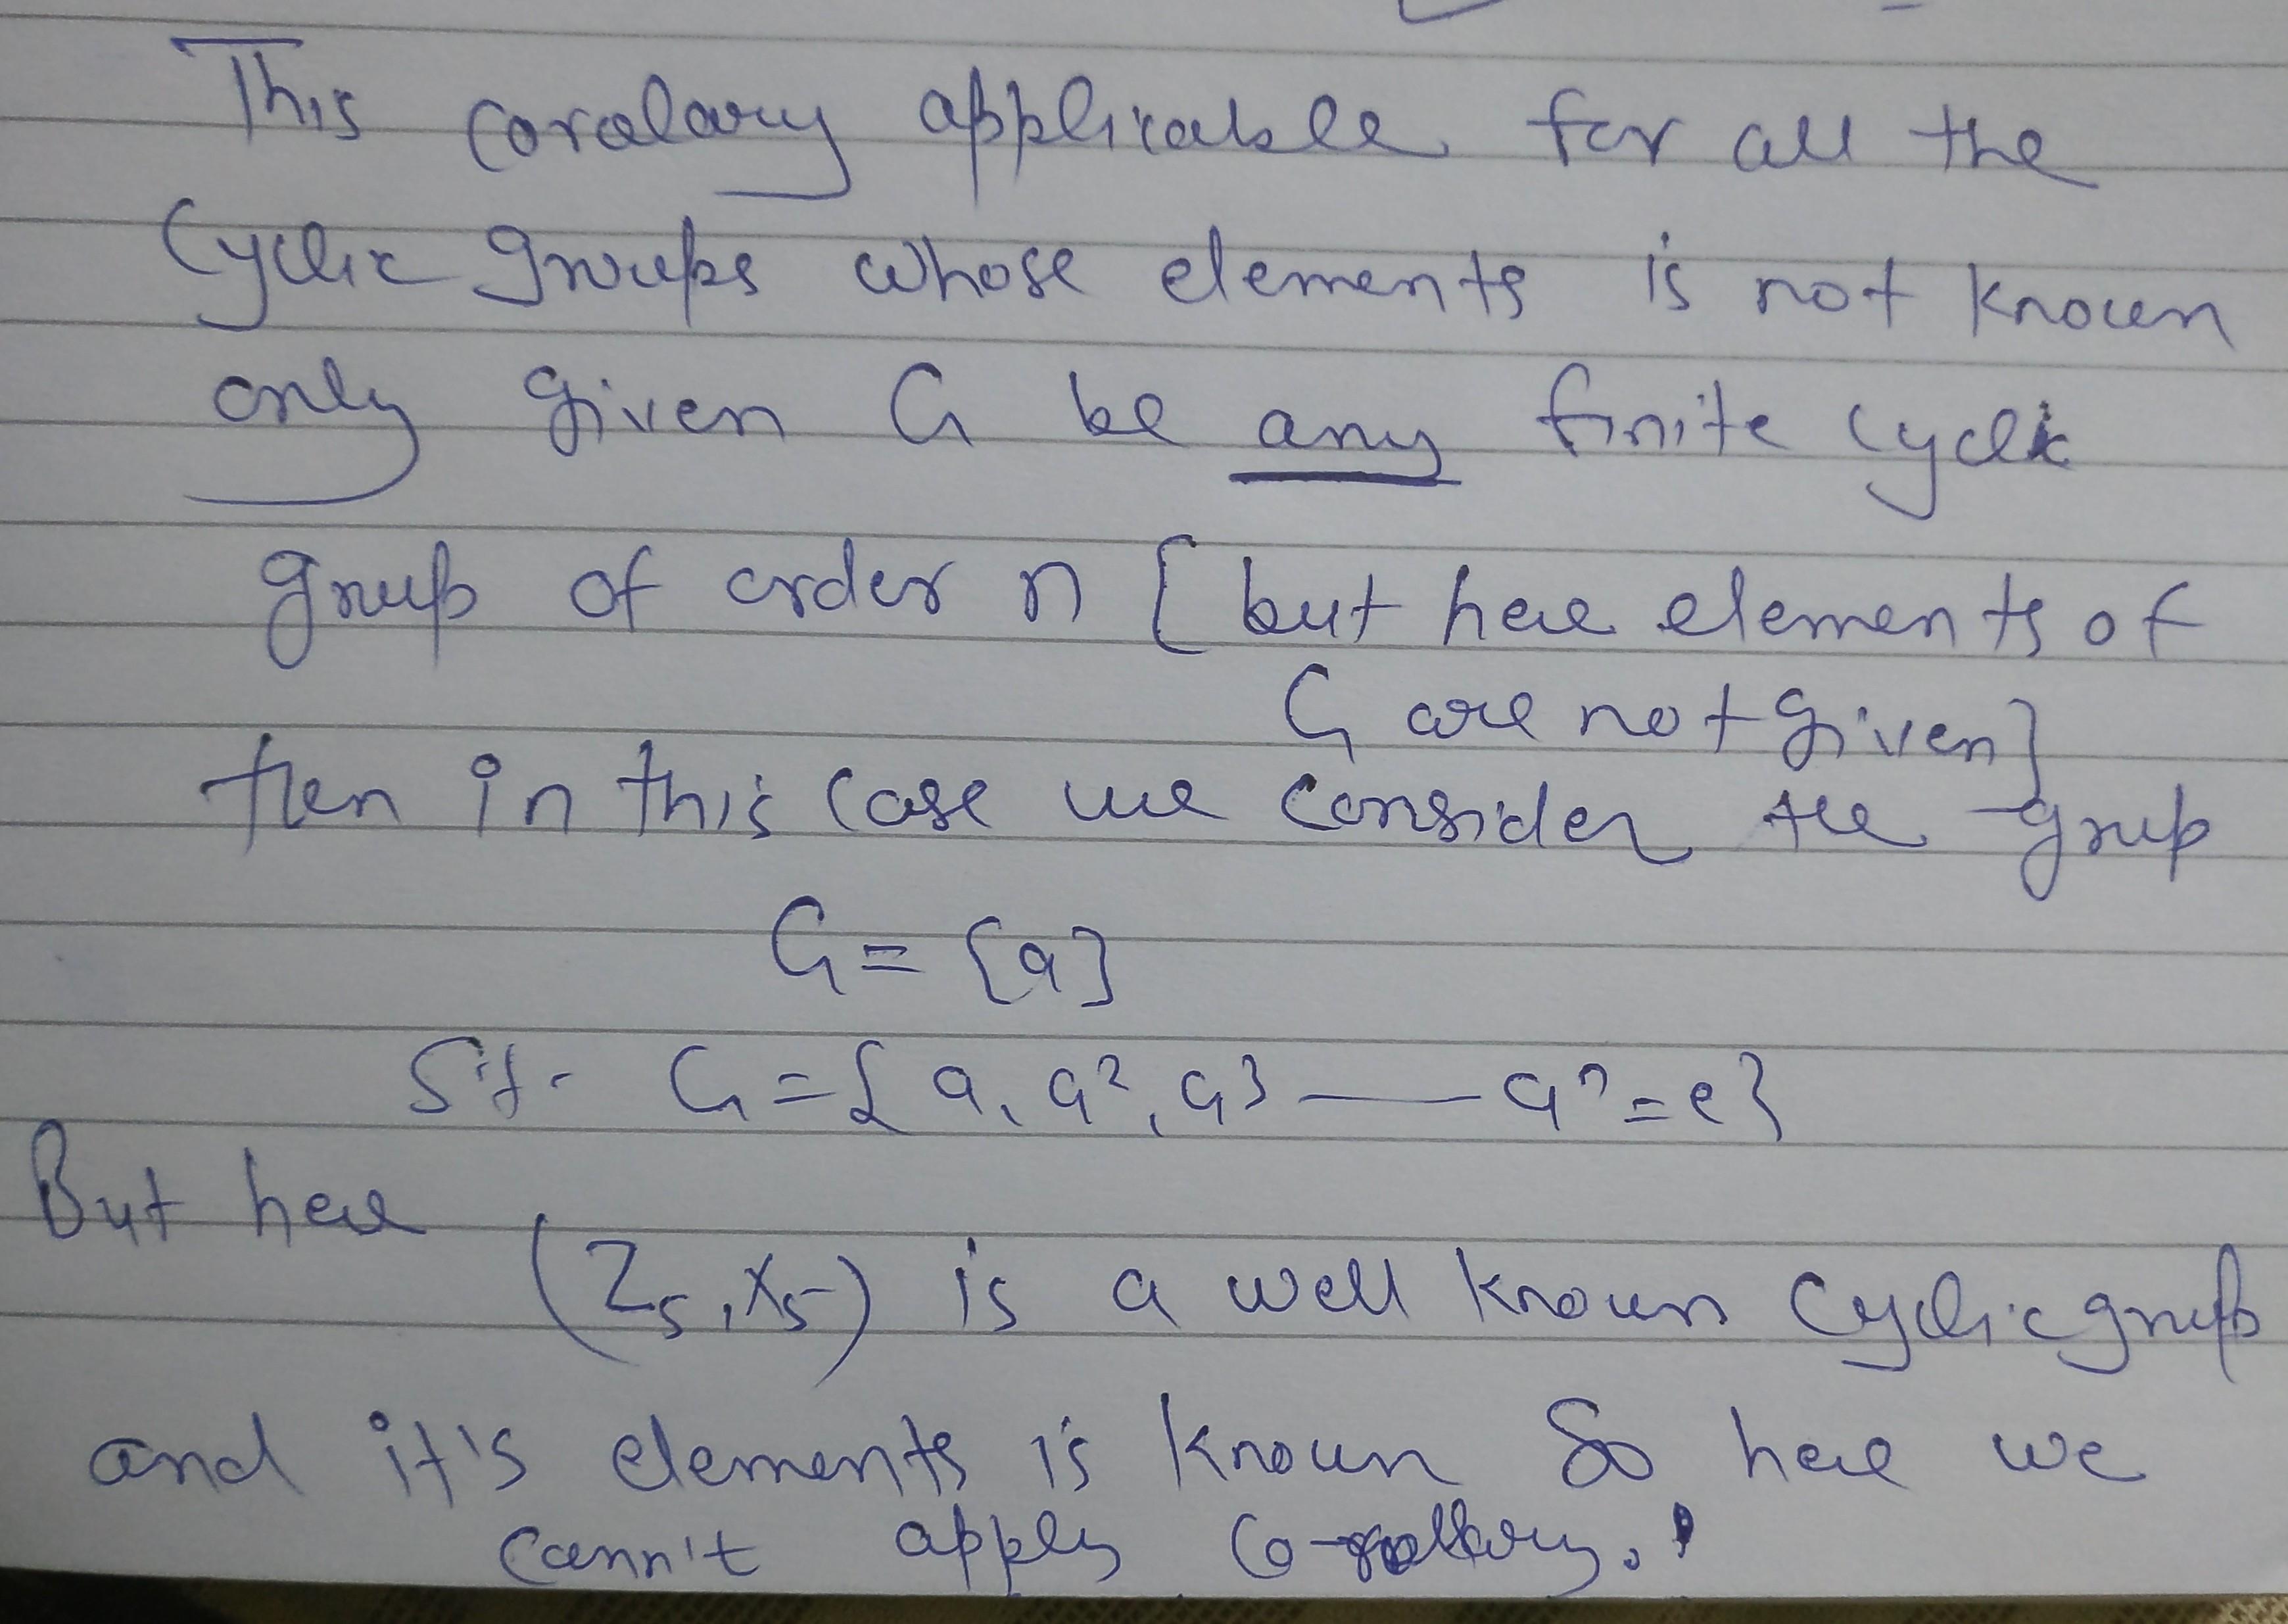 This coralary applicable for all the
Cyclic groups whose elements is not known
only given G be any finite cyclic
group of order n [but here elements of
G are not given]
then in this case we consider the group
G = [a]
S.t. G = {a, a², a³ — aⁿ = e}
But here
(Z₅, X₅) is a well known Cyclic group
and it's elements is known So here we
cann't apply Co-rollary.!